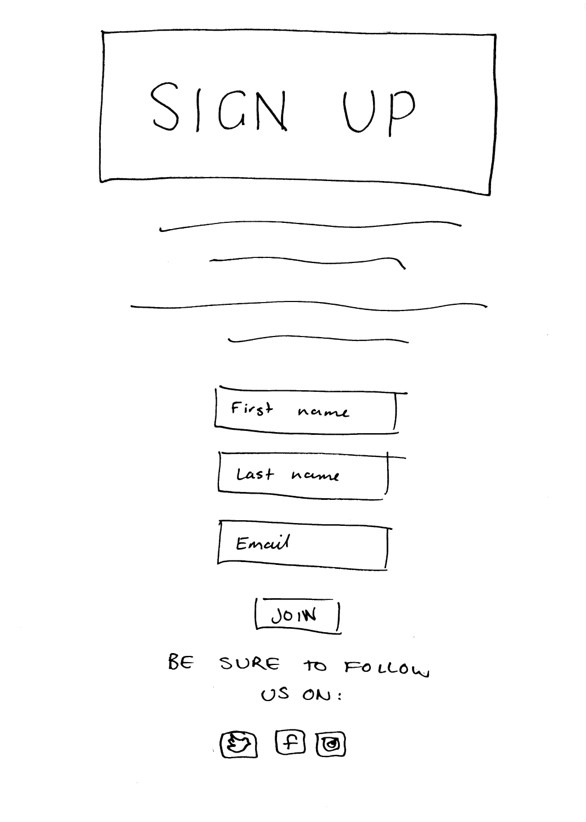 SIGN UP
First name
Last name
Email
JOIN
BE SURE TO FOLLOW
US ON:
f